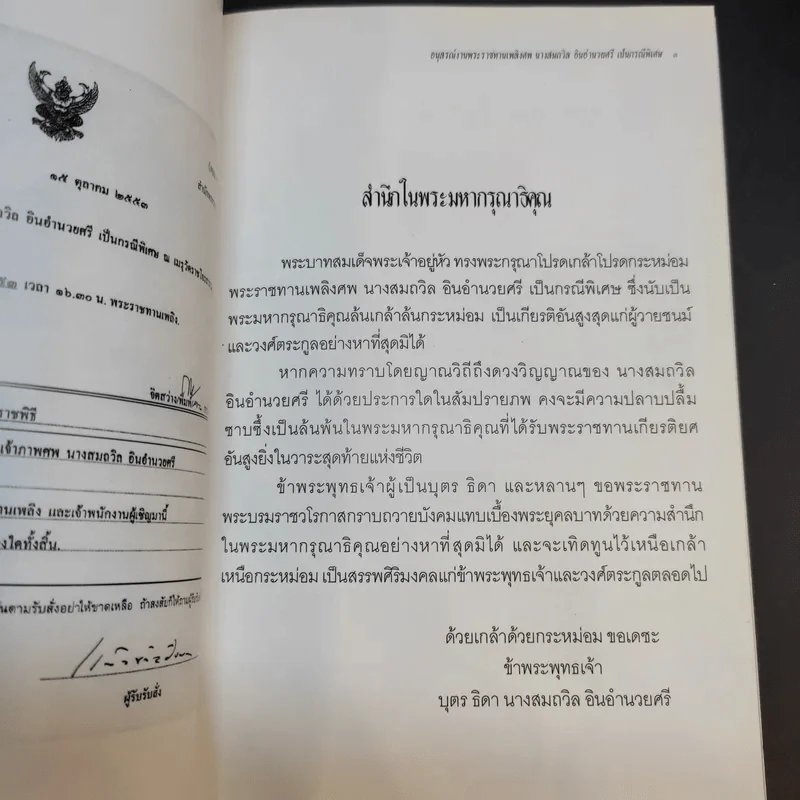 ๑๕ ตุลาคม ๒๕๕๓
อินอำนวยศรี เป็นกรณีพิเศษ ณ
เวลา ๑๖.๓๐ น. พระราชทานเพลิง.
ราชพิธี
เจ้าภาพศพ นางสมถวิล อินอำนวยศรี
านเพลิง และเจ้าพนักงานผู้เชิญมานี้
งใดทั้งสิ้น.
นตามรับสั่งอย่าให้ขาดเหลือ ถ้าสงสัยก็ให้ถาม
ผู้รับรับสั่ง
อนุสรณ์งานพระราชทานเพลิงศพ นางสมถวิล อินอำนวยศรี เป็นกรณีพิเศษ ๑
สำนึกในพระมหากรุณาธิคุณ
พระบาทสมเด็จพระเจ้าอยู่หัว ทรงพระกรุณาโปรดเกล้าโปรดกระหม่อม
พระราชทานเพลิงศพ นางสมถวิล อินอำนวยศรี เป็นกรณีพิเศษ ซึ่งนับเป็น
พระมหากรุณาธิคุณล้นเกล้าล้นกระหม่อม เป็นเกียรติอันสูงสุดแก่ผู้วายชนม์
และวงศ์ตระกูลอย่างหาที่สุดมิได้
หากความทราบโดยญาณวิถีถึงดวงวิญญาณของ นางสมถวิล
อินอำนวยศรี ได้ด้วยประการใดในสัมปรายภพ คงจะมีความปลาบปลื้ม
ซาบซึ้งเป็นล้นพ้นในพระมหากรุณาธิคุณที่ได้รับพระราชทานเกียรติยศ
อันสูงยิ่งในวาระสุดท้ายแห่งชีวิต
ข้าพระพุทธเจ้าผู้เป็นบุตร ธิดา และหลานๆ ขอพระราชทาน
พระบรมราชวโรกาสกราบถวายบังคมแทบเบื้องพระยุคลบาทด้วยความสำนึก
ในพระมหากรุณาธิคุณอย่างหาที่สุดมิได้ และจะเทิดทูนไว้เหนือเกล้า
เหนือกระหม่อม เป็นสรรพศิริมงคลแก่ข้าพระพุทธเจ้าและวงศ์ตระกูลตลอดไป
ด้วยเกล้าด้วยกระหม่อม ขอเดชะ
ข้าพระพุทธเจ้า
บุตร ธิดา นางสมถวิล อินอำนวยศรี